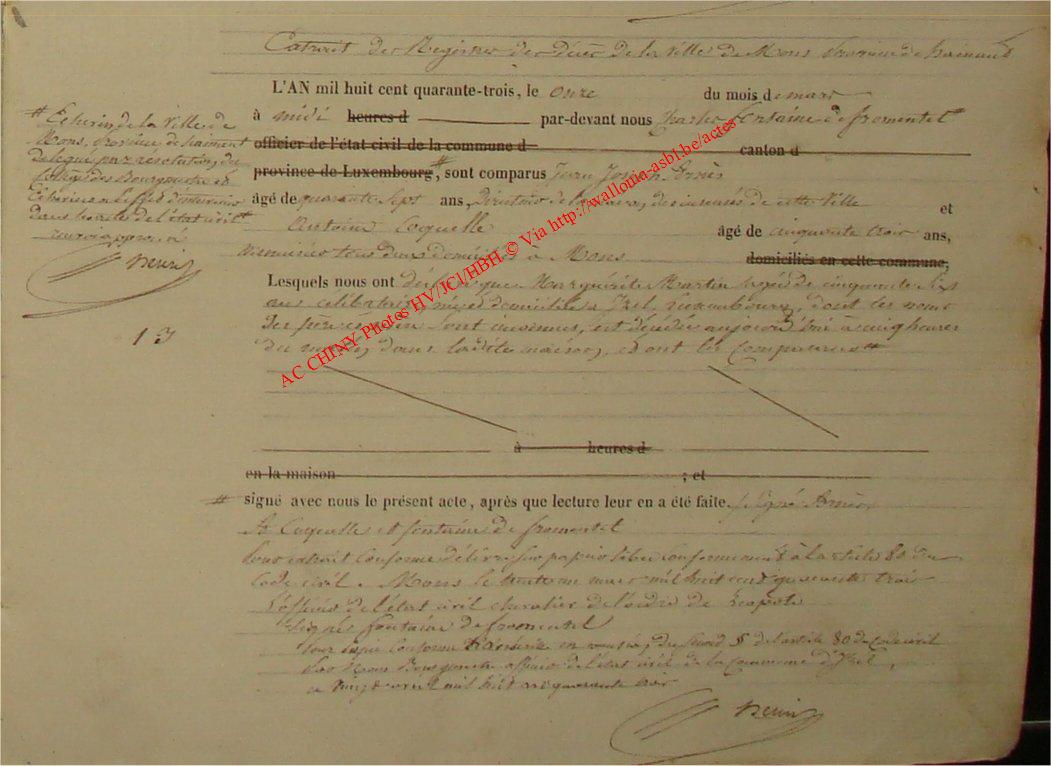 Extrait des Registres des décès de la Ville de Mons Province de hainaut
L'AN mil huit cent quarante-trois, le onze du mois de mars
à midi heures d par-devant nous Charles fontaine de fromentel #
officier de l'état civil de la commune d canton d
province de Luxembourg, # sont comparus
âgé de quarante Sept ans, Directeur de la maison de de cette Ville et
Antoine Coquelle âgé de cinquante trois ans,
menuisier tous deux domiciliés à Mons domiciliés en cette commune,
Lesquels nous ont déclaré que Marguerite Martin agée de cinquante Six
ans célibataire, née et domiciliée à Izel, Luxembourg, dont les noms
des père et mère sont inconnus, est décédée aujourd'hui à cinq heures
du matin, dans ladite maison, et ont les comparants #
à heures d
en la maison ; et
# signé avec nous le présent acte, après que lecture leur en a été faite. Signé
A Coquelle et fontaine de fromentel
Pour extrait Conforme délivré sur papier libre conformement à l'article 80 du
Code civil. Mons le mars mil huit cent quarante trois
L'officier de l'état civil chevalier de l'ordre de Leopold
Signé fontaine de fromentel
Pour copie Conforme du second § de l'article 80 du Code civil
Par Nous Bourgmestre officier de l'état civil de la Commune d'Izel,
ce mil huit cent quarante trois
# Echevin de la Ville de
Mons, province de hainaut
délégué par resolution du
Collège des Bourgmestre et
Echevins
l'état civil
renvoi approuvé
13
AC CHINY Photos HV/JCl/HBH © Via http://wallonia-asbl.be/actes